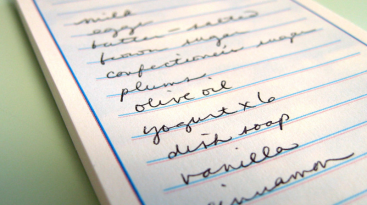 milk
eggs
butter - salted
brown sugar
confectioner sugar
plums
olive oil
yogurt x 6
dish soap
vanilla
cinnamon